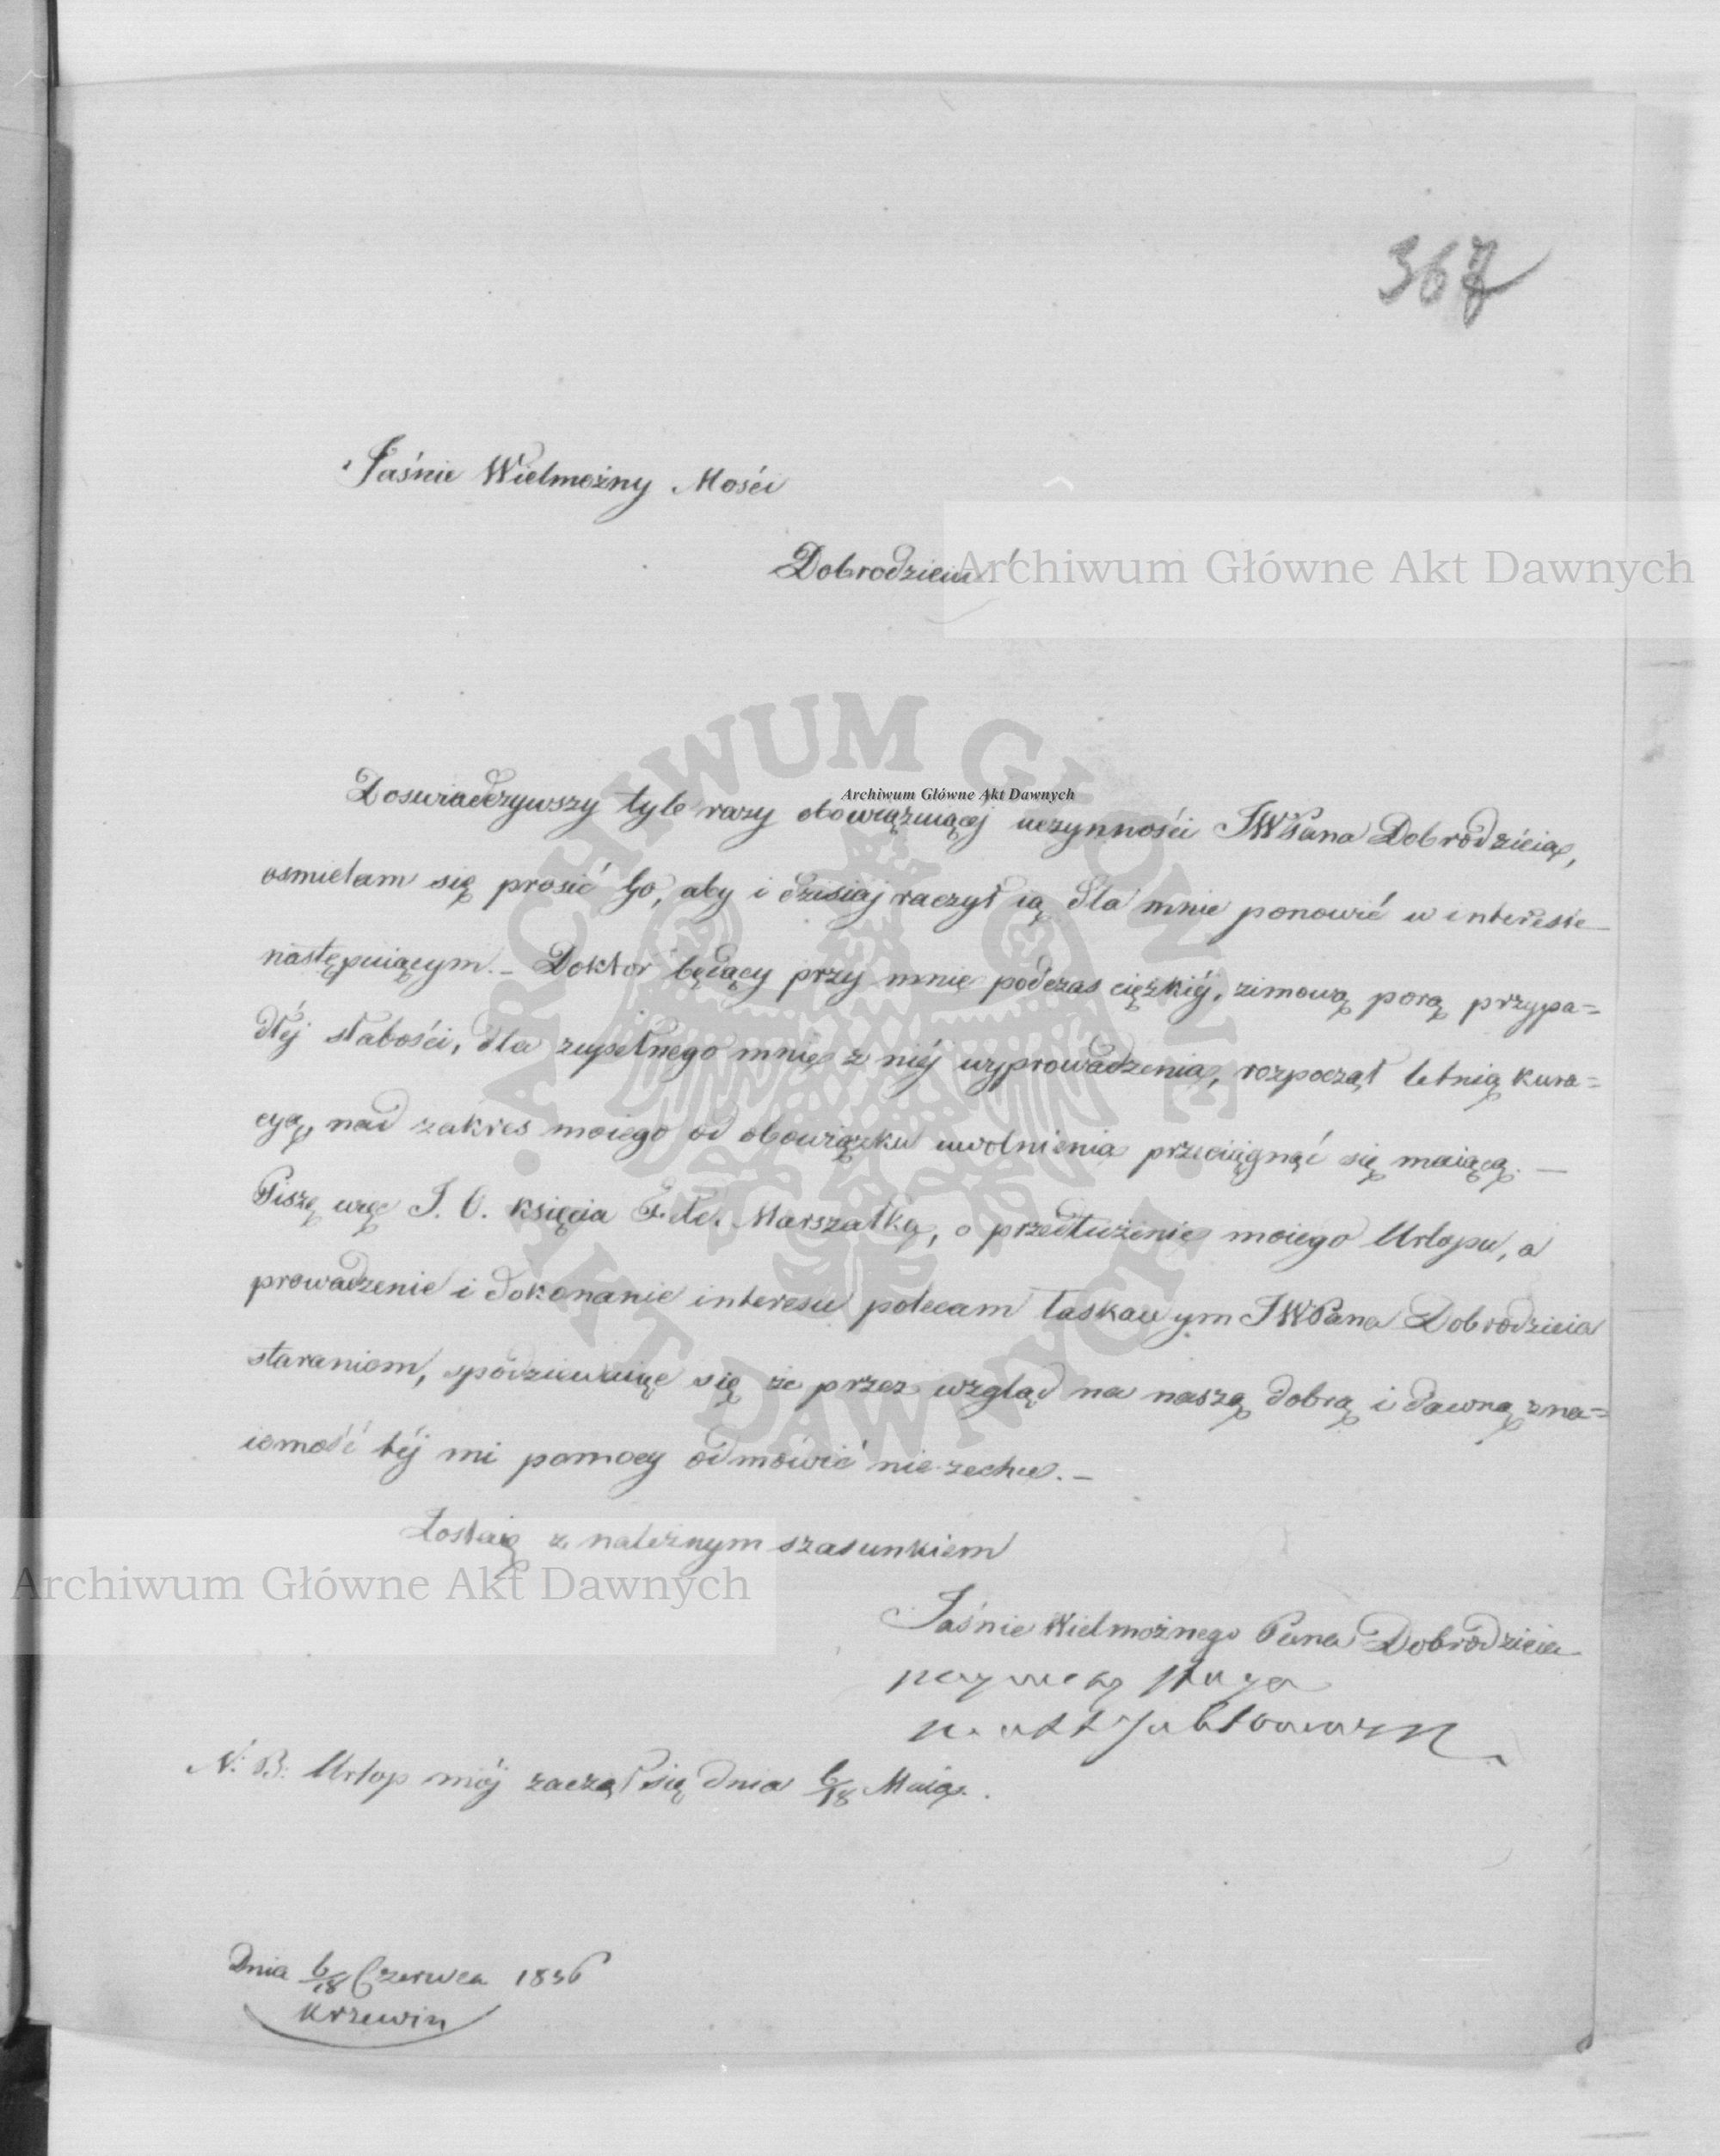 367
Jaśnie Wielmożny Mości
Dobrodzieiu
Archiwum Główne Akt Dawnych
ARCHIWUM GŁÓWNE AKT DAWNYCH
Archiwum Główne Akt Dawnych
Doswiadczywszy tyle razy obowiązuiącej uczynności JWPana Dobrodzieia,
osmielam się prosić Go, aby i dzisiaj raczył ią dla mnie ponowić w interesie
następuiącym. – Doktor będący przy mnie podczas cięzkiéj, zimową porą przypa=
dłéj słabości, dla zupełnego mnie z niéj wyprowadzenia, rozpoczął letnią kura=
cyą, nad zakres moiego od obowiązku uwolnienia przeciągnąć się maiącą. —
Piszę więc J. O. księcia Marszałka, o przedłużenie moiego Urlopu, a
prowadzenie i dokonanie interesu polecam łaskawym JWPana Dobrodzieia
staraniom, spodziewaiąc się że przez wzgląd na naszą dobrą i dawną zna=
iomość téj mi pomocy odmówić nie zechce. –
Zostaię z należnym szacunkiem
Archiwum Główne Akt Dawnych
Jaśnie Wielmożnego Pana Dobrodzieia
sługa
N: B: Urlop mój zaczął się dnia 6/18 Maia.
Dnia 6/18 Czerwca 1836
Krzewin